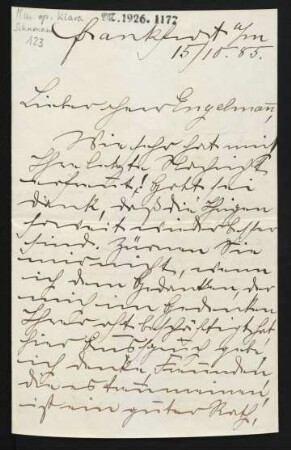 Mus. ep. Klara
Schumann
123
M. 1926. 1177
Frankfurt a/m
15/10. 85.
Lieber Herr Engelmann,
Wie sehr hat mich
Ihre letzte Nachricht
erfreut! Gott sei
Dank, daß die Ihrigen
soweit wieder besser
sind. Zürnen Sie
mir nicht, wenn
ich dem Gedanken, der
mich im Gedenken
Ihrer oft beschäftigt hat,
hier Ausdruck gebe,
ich denke, Freunden,
die es treu meinen,
ist ein guter Rath,